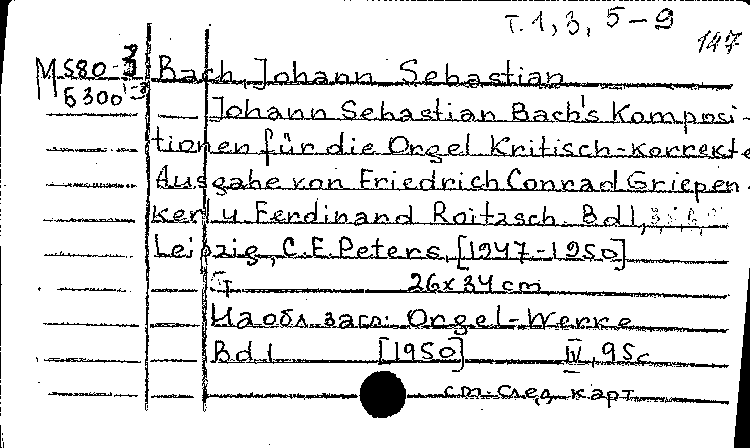 Т. 1, 3, 5-9
147
М 580-3 Bach, Johann Sebastian
Б300
Johann Sebastian Bach's Komposi-
tionen für die Orgel Kritisch-korrekte
Ausgabe von Friedrich Conrad Griepen-
kerl u. Ferdinand Roitzsch. Bd 1,
Leipzig, C.F. Peters, [1947-1950]
Т 26x34 cm
На обл. загл: Orgel-Werke
Bd 1 [1950] IV, 95 с
см. след. карт